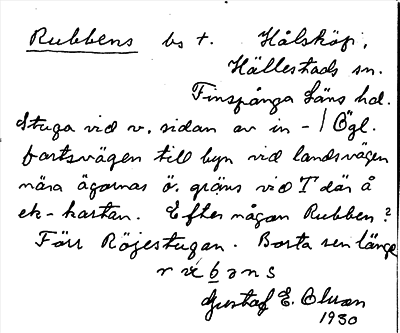 Rubbens bs t. Hålsköp,
Hällestads sn.
Finspånga läns hd.
Stuga vid v. sidan av in- / Ögl.
fartsvägen till byn vid landsvägen
nära ägornas ö. gräns vid T där å
ek-kartan. Efter någon Rubben?
Förr Röjestugan. Borta sen länge
Gustaf E. Olson
1930